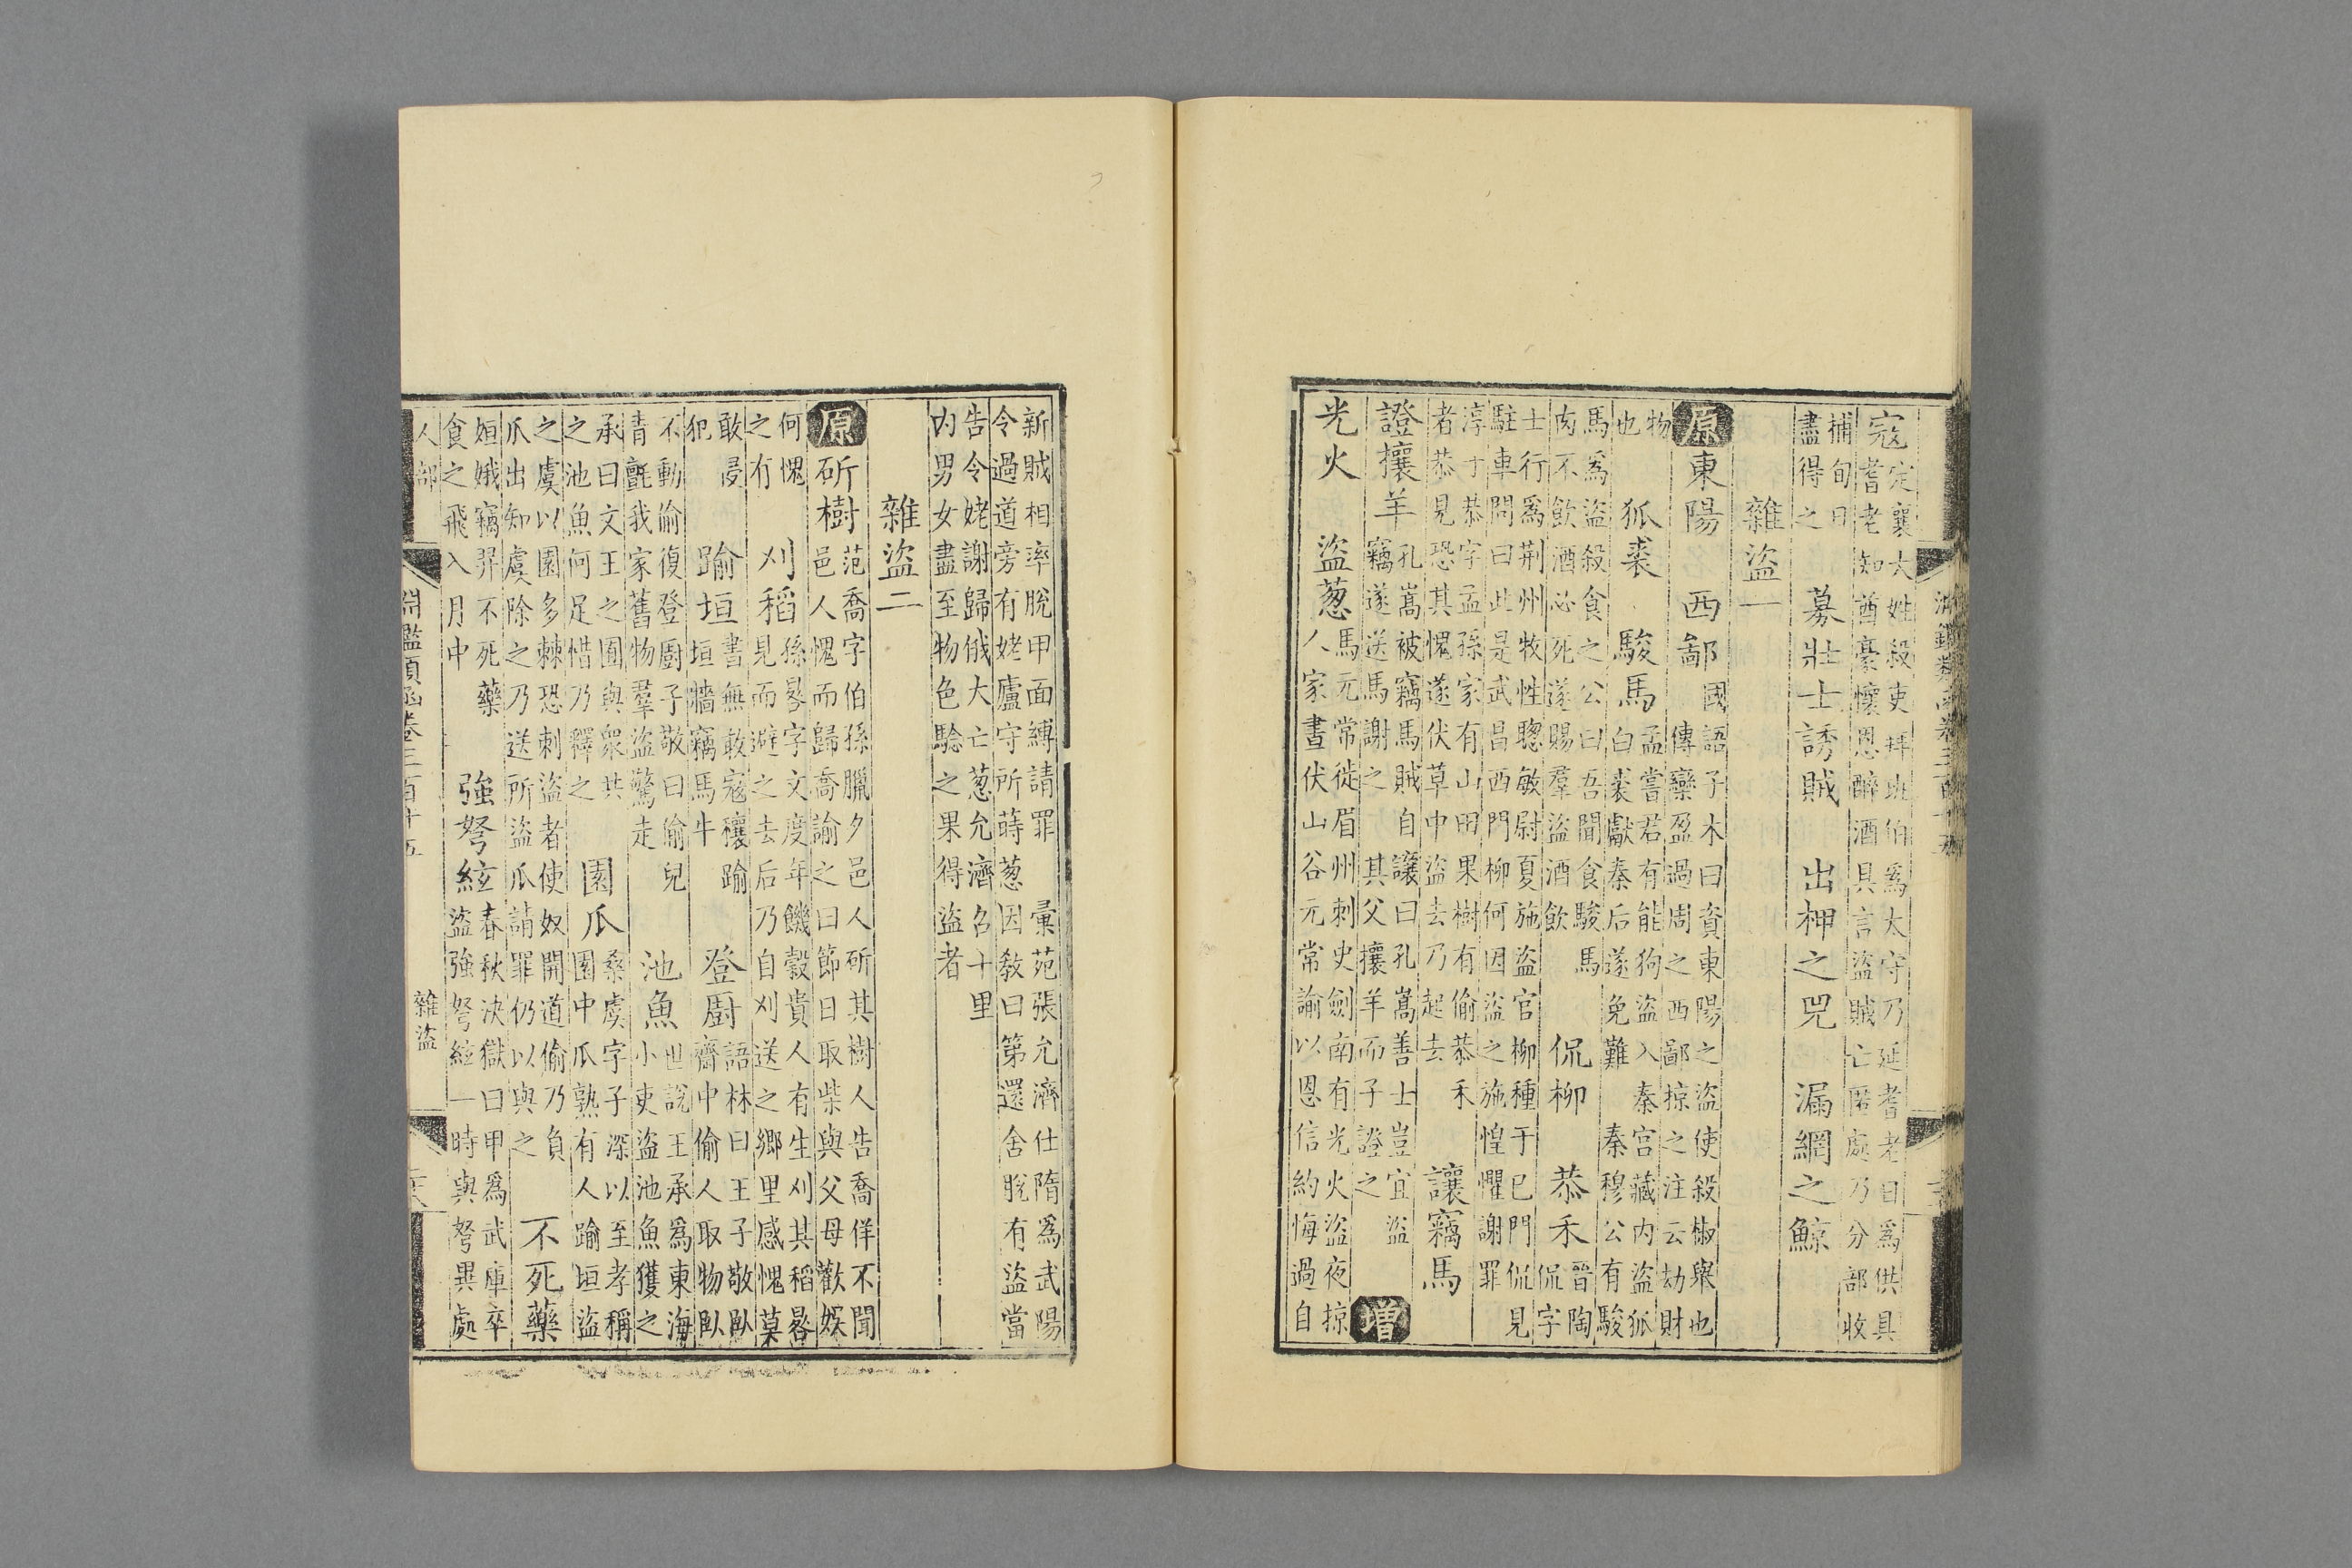 寇定襄大姓殺吏拜班伯爲太守乃延耆老曰爲供具
耆老知酋豪懷恩醉酒具言盜賊亡匿處乃分部收
捕旬日
盡得之
募壯士誘賊　出柙之兕　漏網之鯨
雜盜一
原東陽　西鄙國語子木曰資東陽之盜使殺椒舉也
傳欒盈過周之西鄙掠之注云劫財
物
也
狐裘　駿馬孟嘗君有能狗盜入秦宮藏内盜狐
白裘獻秦后遂免難　秦穆公有駿
馬爲盜殺食之公曰吾聞食駿馬
肉不飲酒必死遂賜羣盜酒飲
侃柳　恭禾晉陶
侃字
士行爲荆州牧性聰敏尉夏施盜官柳種于巳門侃見
駐車問曰此是武昌西門柳何因盜之施惶懼謝罪
淳于恭字孟孫家有山田果樹有偷恭禾
者恭見恐其愧遂伏草中盜去乃起去
讓竊馬
證攘羊孔嵩被竊馬賊自讓曰孔嵩善士豈宜盜
竊遂送馬謝之　其父攘羊而子證之
增
光火　盜葱馬元常徙眉州刺史劍南有光火盜夜掠
人家晝伏山谷元常諭以恩信約悔過自
新賊相率脫甲面縛請罪　彙苑張允濟仕隋爲武陽
令過道旁有姥廬守所蒔葱因教曰第還舍脫有盜當
告令姥謝歸俄大亡葱允濟召十里
内男女盡至物色驗之果得盜者
雜盜二
原斫樹范喬字伯孫臘夕邑人斫其樹人告喬佯不聞
邑人愧而歸喬諭之曰節日取柴與父母歡娛
何愧
之有
刈稻孫晷字文度年饑穀貴人有生刈其稻晷
見而避之去后乃自刈送之鄉里感愧莫
敢侵
犯
踰垣書無敢寇穰踰
垣牆竊馬牛
登廚語林曰王子敬臥
齋中偷人取物臥
不動偷復登廚子敬曰偷兒
青氈我家舊物羣盜驚走
池魚世說王承爲東海
小吏盜池魚獲之
承曰文王之囿與衆共
之池魚何足惜乃釋之
園瓜桑虞字子深以至孝稱
園中瓜熟有人踰垣盜
之虞以園多棘恐刺盜者使奴開道偷乃負
瓜出知虞除之乃送所盜瓜請罪仍以與之
不死藥
姮娥竊羿不死藥
食之飛入月中
強弩絃春秋決獄曰甲爲武庫卒
盜強弩絃一時與弩異處
人部
淵鑑類函卷三百十五
雜盜